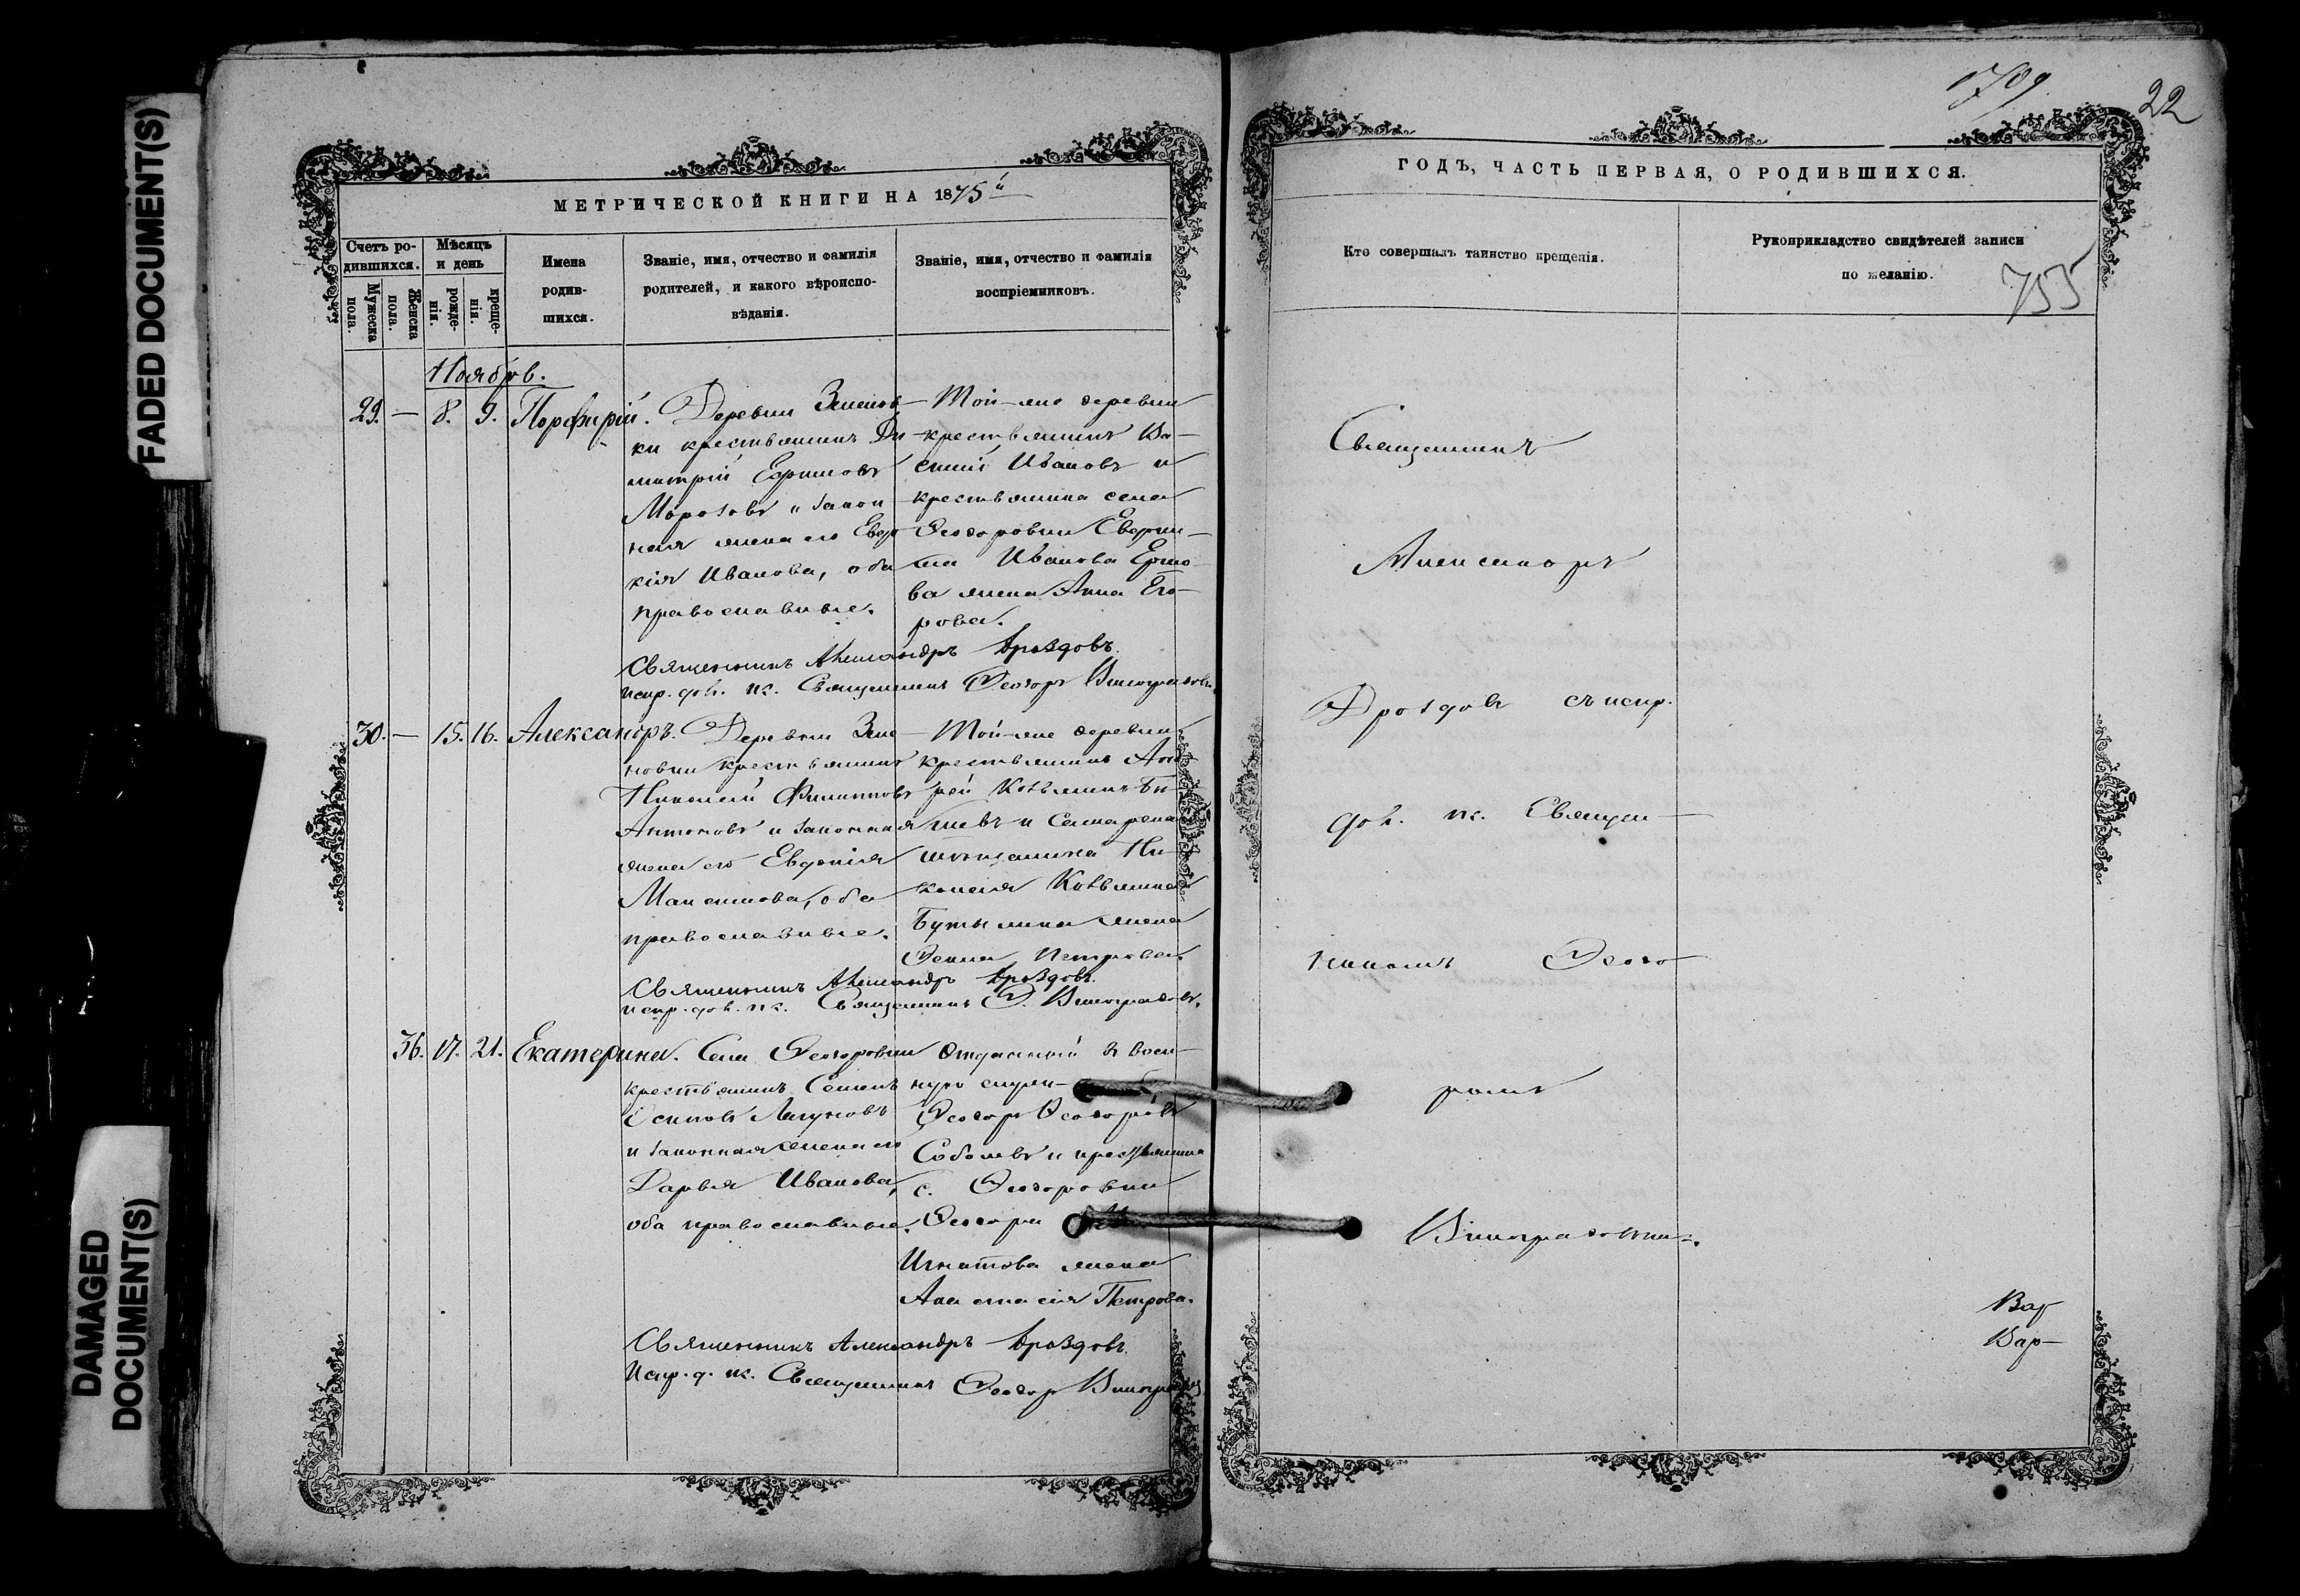 FADED DOCUMENT(S)
DAMAGED
DOCUMENT(S)
МЕТРИЧЕСКОЙ КНИГИ НА 1875й
Счетъ ро-
дившихся.
Мужеска
пола.
Женска
пола.
Мѣсяцъ
и день
рожде-
нія.
креще-
нія.
Имена
родив-
шихся.
Званіе, имя, отчество и фамилія
родителей, и какого вѣроиспо-
вѣданія.
Званіе, имя, отчество и фамилія
воспріемниковъ.
Ноябрь.
29. — 8. 9. Порфирій.
Деревни Зеленов-
ки крестьянинъ Ди-
митрій Ефимовъ
Морозовъ и закон
ная жена его Евдо
кія Иванова, оба
православные.
Той-же деревни
крестьянинъ Ва-
силій Ивановъ и
крестьянина села
Ѳеодоровки
Иванова Ермо-
ва жена Анна Его-
рова.
Священникъ Александръ Дроздовъ.
испр. дол. пс. Священникъ Ѳеодоръ Виноградовъ.
30. — 15. 16. Александръ.
Деревни Зеле-
новки крестьянинъ
Николай Филипповъ
Антоновъ и законная
жена его Евдокія
Максимова, оба
православные.
Той-же деревни
крестьянинъ Анд
рей Козьминъ
и Самарскаго
мѣщанина Ни-
колая Козьмина
Бутылина жена
Петрова.
Священникъ Александръ Дроздовъ.
испр. дол. пс. Священникъ Ѳ. Виноградовъ.
36. 17. 21. Екатерина.
Села Ѳеодоровки
крестьянинъ Семенъ
Осиповъ
и законная жена его
Дарья Иванова,
оба православные.
Отданный въ воен-
ную служ-
Ѳеодоръ Ѳеодоровъ
Соболевъ и крестьянина
с. Ѳеодоровки
Игнатова жена
Анастасія Петрова.
Священникъ Александръ Дроздовъ.
Испр. д. пс. Священникъ Ѳеодоръ Виноградовъ
22
ГОДЪ, ЧАСТЬ ПЕРВАЯ, О РОДИВШИХСЯ.
Кто совершалъ таинство крещенія.
Рукоприкладство свидѣтелей записи
по желанію.
755
Священникъ
Александръ
Дроздовъ съ испр.
дол. пс. Священ-
никомъ Ѳеодо-
ромъ
Виноградовымъ.
Вар
Вар-